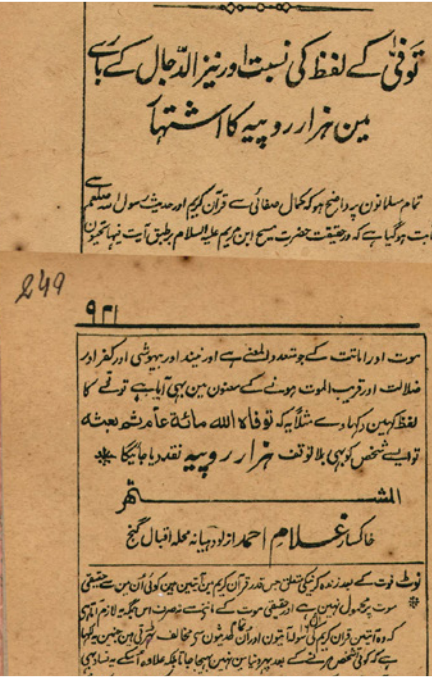 توفّی کے لفظ کی نسبت اور نیز الدّجال کے بارے
مین ہزار روپیہ کا اشتہار
تمام مسلمانون پر واضح ہو کہ کمال صفائی سے قرآن کریم اور حدیث رسول اللہ صلعم سے
ثابت ہو گیا ہے کہ درحقیقت حضرت مسیح ابن مریم علیہ السلام برطبق آیت فیہا تحیون
249
۹۲۱
موت اور اماتت کے جو متعدد المعنے ہے اور نیند اور بیہوشی اور کفر اور
ضلالت اور قریب الموت ہونے کے معنون مین بھی آیا ہے توفّے کا
لفظ کہین دکھا دے مثلاً یہ کہ توفاہ اللہ مائة عام ثم بعثه
تو ایسے شخص کو بھی بلا توقف ہزار روپیہ نقد دیا جائیگا
المشتہر
خاکسار غلام احمد از لودہیانہ محلہ اقبال گنج
نوٹ فوت کے بعد زندہ کرنیکے متعلق جس قدر قرآن کریم مین آیتین ہین کوئی اُن مین سے حقیقی
موت پر محمول نہین ہے اور حقیقی موت کے ماننے سے نہ صرف اس جگہ یہ لازم آتا ہی
کہ وہ آیتین قران کریم کی اُن سولہ آیتون اور اُن تمام حدیثون سے مخالف ٹھہرتی ہین جنمین یہ لکھا
ہے کہ کوئی شخص مرنے کے بعد پھر دنیا مین نہین بھیجا جاتا بلکہ علاوہ اسکے یہ فساد بھی